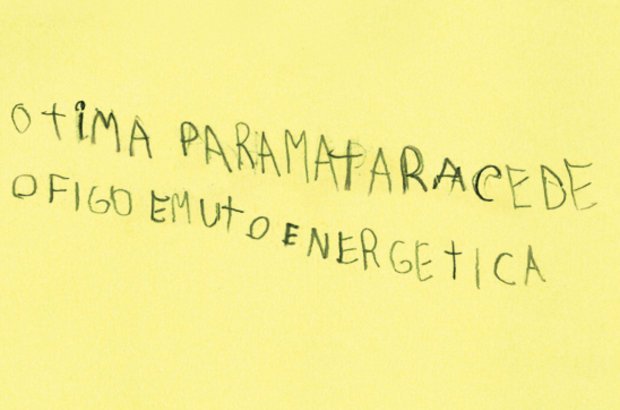 OTIMA PARAMATARACEDE
OFIGO EMUTO ENERGETICA